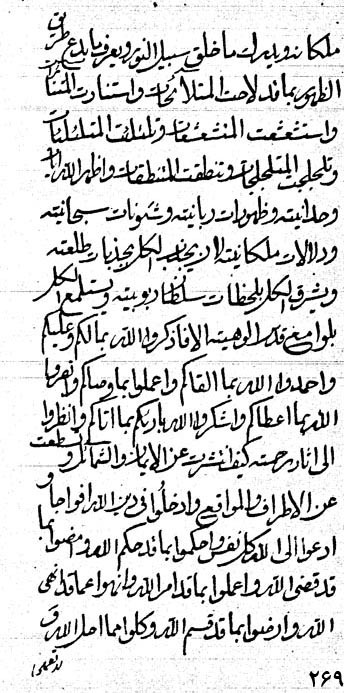 ملكانه ويدرك ما خلق سبيل النور ويعرف ما بدع طرق
الظهور بما قد لاحت المتلائحات واستنارت
واستشعشعت المتشعشعات وتلئلئت المتلئلئات
وتلجلجت المتلجلجات وتنطقت المنتطقات واظهر الله
وحدانيته وظهورات ربانيته وشئونات سبحانيته
ودلالات ملكانيته الا يريد الكل بجذبات طلعته
ويشرق الكل بلحظات سلطان ربوبيته ويستلمع الكل
بلوامع قدس الوهيته الا فاذكروا الله بما لكم وعليكم
واحمدوا الله بما القاكم واعملوا بما وصاكم
الله بما اعطاكم واشكروا الله بارئكم بما اتاكم وانظروا
الى اثار رحمته كيف نشرت عن الايمان والشمائل وسطعت
عن الاطراف والمواقع وادخلوا في دين الله افواجا و
ادعوا الى الله كل نفس واحكموا بما قد حكم الله وامضوا بما
قد قضى الله واعملوا بما قد امر الله وانهوا عما قد نهى
الله وارضوا بما قد قسم الله وكلوا مما احل الله و
٢۶٩